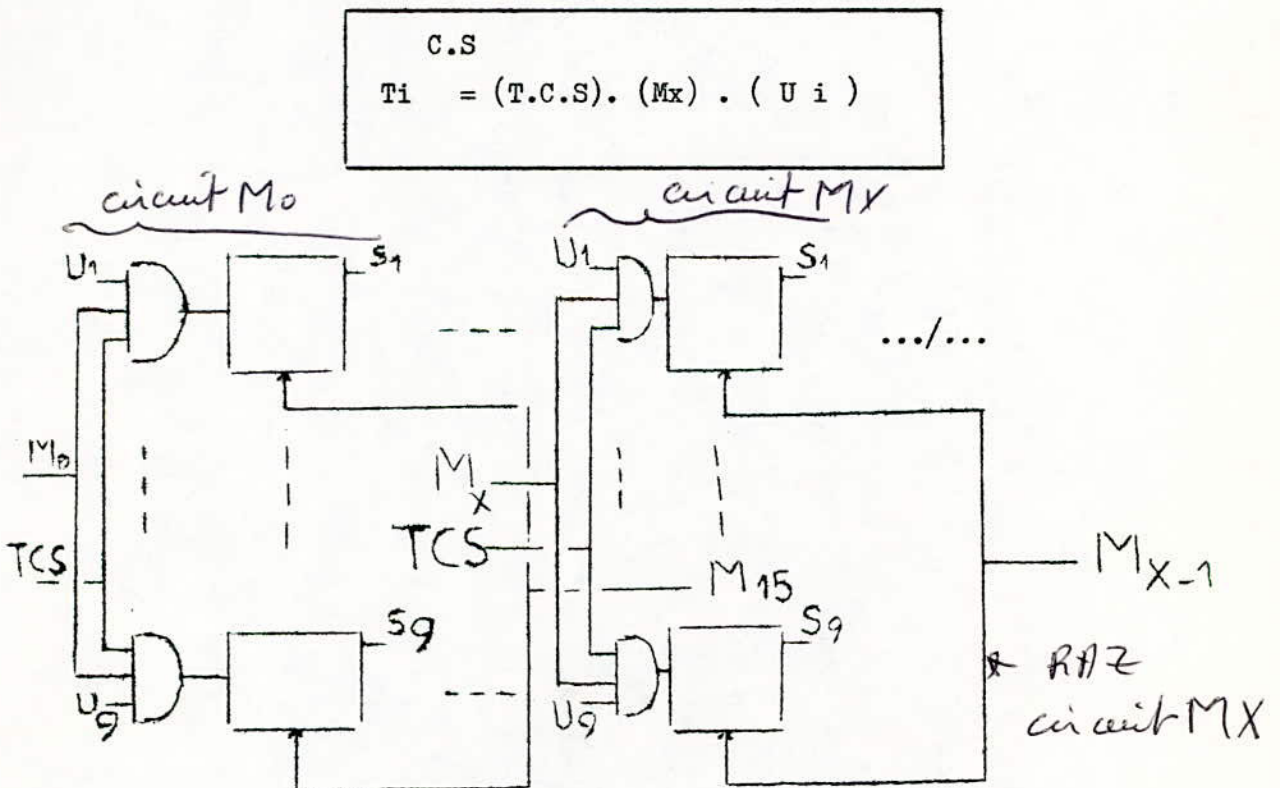 C.S
Ti = (T.C.S). (Mx) . ( U i )
circuit Mo
circuit MX
U1
S1
U1
S1
.../...
M0
Mx
TCS
TCS
M15
MX-1
S9
S9
U9
U9
* RAZ
circuit MX